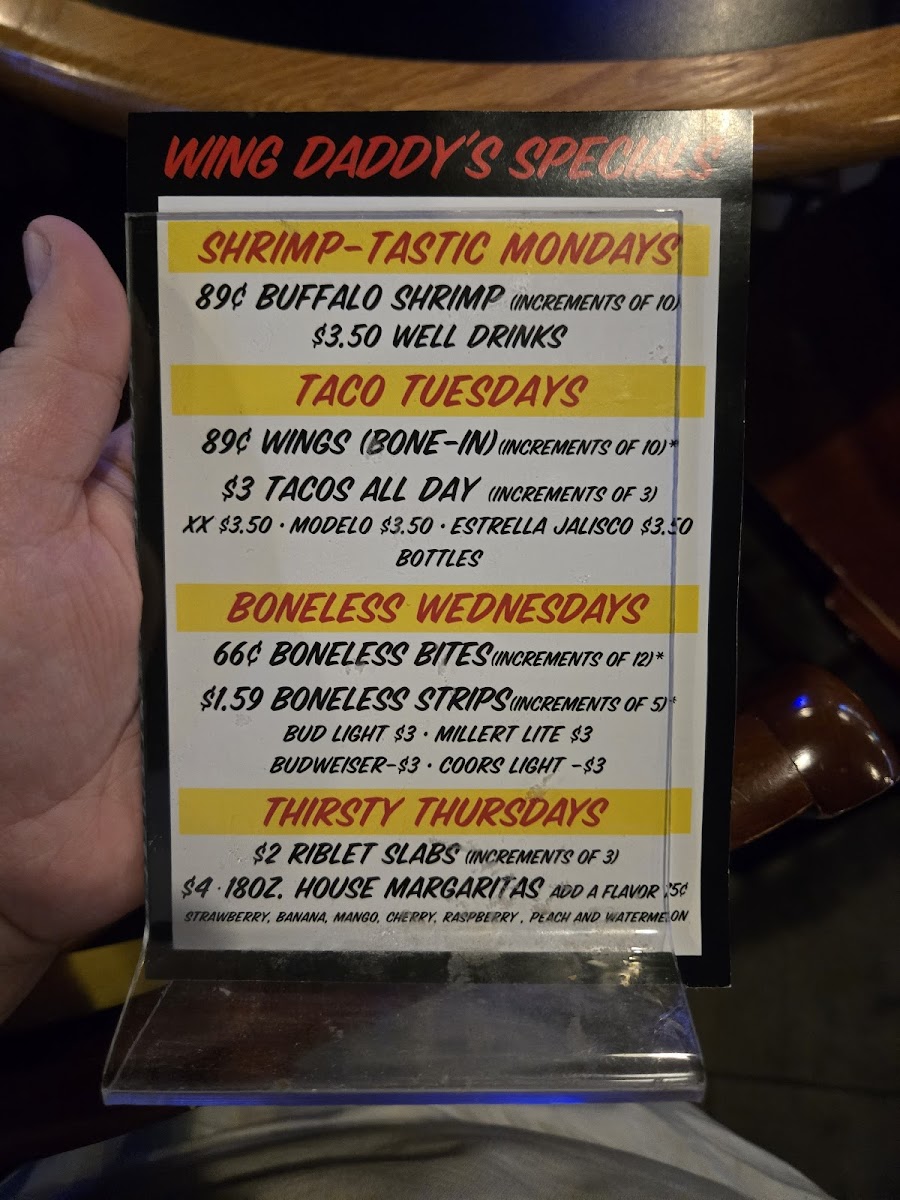 WING DADDY'S SPECIALS
SHRIMP-TASTIC MONDAYS
89¢ BUFFALO SHRIMP (INCREMENTS OF 10)
$3.50 WELL DRINKS
TACO TUESDAYS
89¢ WINGS (BONE-IN) (INCREMENTS OF 10)*
$3 TACOS ALL DAY (INCREMENTS OF 3)
XX $3.50 · MODELO $3.50 · ESTRELLA JALISCO $3.50
BOTTLES
BONELESS WEDNESDAYS
66¢ BONELESS BITES (INCREMENTS OF 12)*
$1.59 BONELESS STRIPS (INCREMENTS OF 5)*
BUD LIGHT $3 · MILLERT LITE $3
BUDWEISER-$3 · COORS LIGHT -$3
THIRSTY THURSDAYS
$2 RIBLET SLABS (INCREMENTS OF 3)
$4 · 18OZ. HOUSE MARGARITAS ADD A FLAVOR
STRAWBERRY, BANANA, MANGO, CHERRY, RASPBERRY , PEACH AND WATERMELON